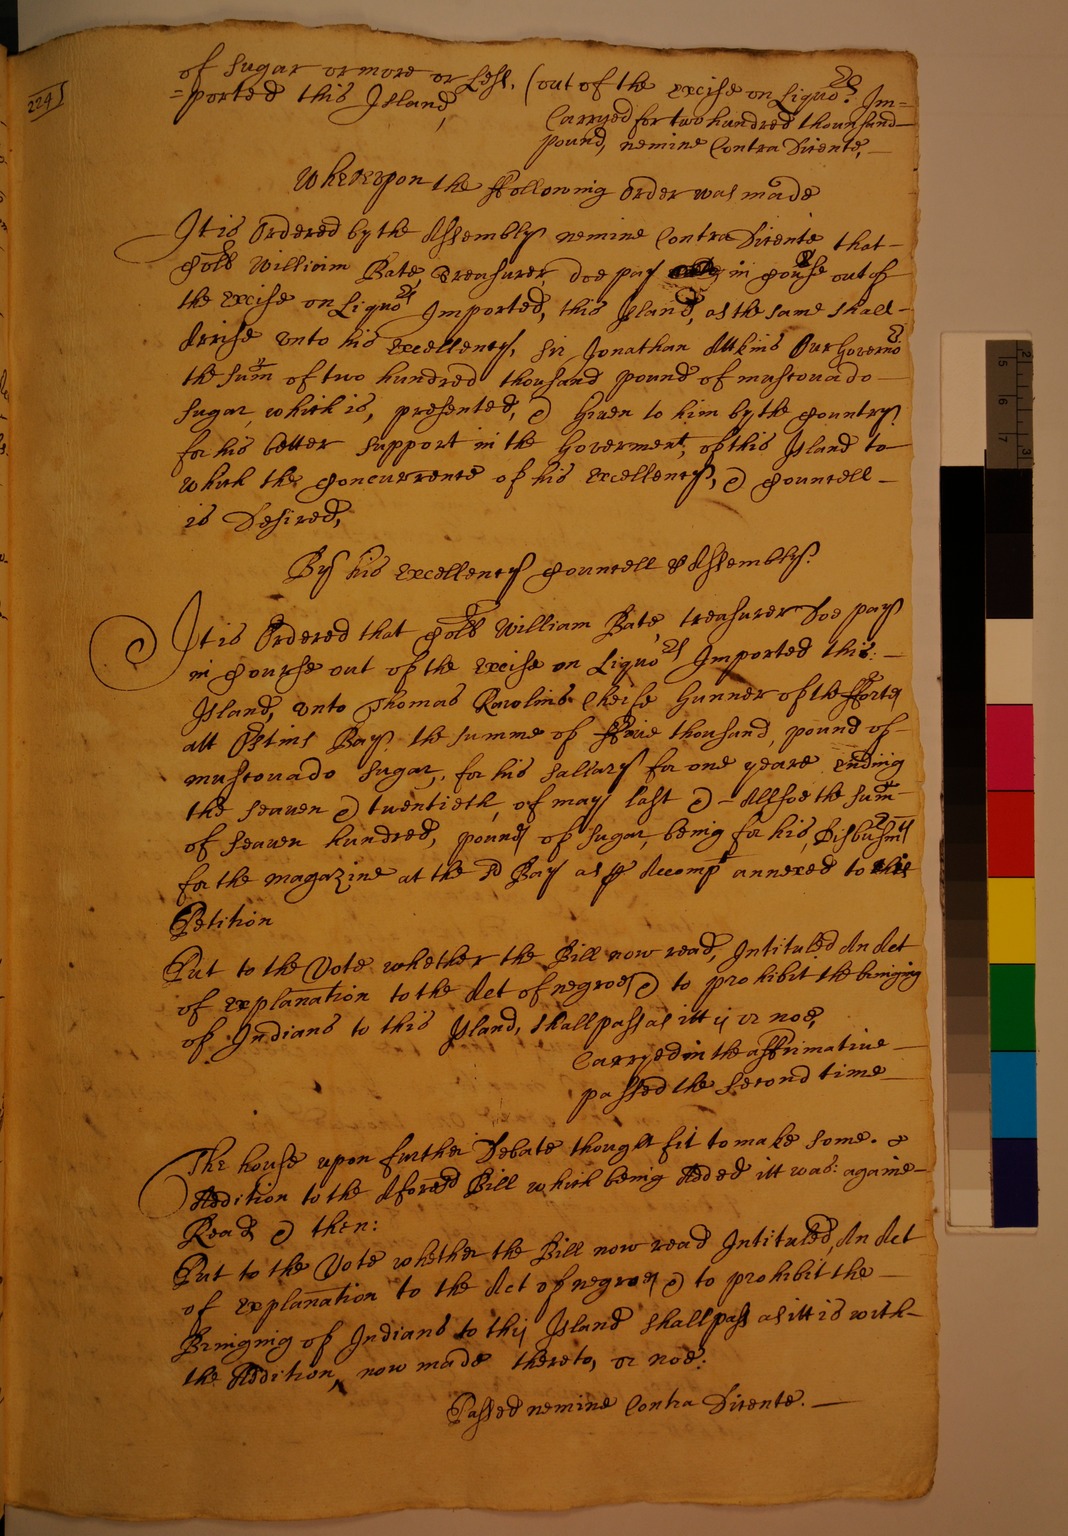 224
of Sugar or more or Less, (out of the excise on Liquors Im=
=ported this Island,
Carryed for two hundred thousand
pound, nemine Contra Dicente,
Whereupon the ffollowing Order was made
It is Ordered by the Assembly nemine Contra Dicente that
Collo William Bate, Treasurer, doe pay in Course out of
the excise on Liquors Imported, this Island, as the same shall
Arrise unto his Excellency, Sir Jonathan Atkins Our Governor
the sum of two hundred thousand pound of muscovado
Sugar, which is, presented, & Given to him by the Country
for his better support in the Goverment, of this Island to
which the Concurrence of his Excellency, & Councell
is Desired,
By his Excellency Councell & Assembly.
It is Ordered that Collo William Bate, treasurer Doe pay
in Course out of the excise on Liquors Imported this
Island, unto Thomas Rawlins Cheife Gunner of the fforts
att Ostins Bay the summe of ffive thousand, pound of
muscovado Sugar, for his Sallary for one yeare ending
the seaven & twentieth, of may last & Allsoe the sum
of seaven hundred, pounds of Sugar, being for his, Disbursmts
for the magazine at the sd Bay as p Accompt annexed to his
Petition
Put to the Vote whether the Bill now read, Intituled An Act
of explanation to the Act of negroes & to prohibit the bringing
of Indians to this Island, shall pass as itt is or noe,
Carryed in the affirmative
passed the second time
The house upon further Debate thought fit to make some
Addition to the Aforesd Bill which being Added itt was: againe
Read & then:
Put to the Vote whether the Bill now read Intituled, An Act
of explanation to the Act of negroes & to prohibit the
Bringing of Indians to this Island shall pass as itt is with
the Addition, now made thereto, or noe:
Passed nemine Contra Dicente.